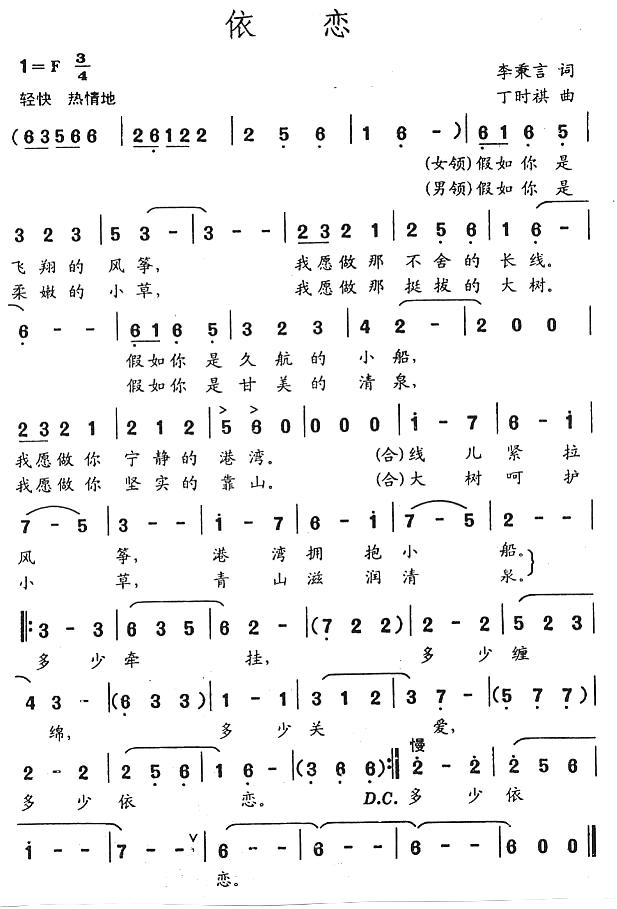 依 恋
1=F 3/4
李秉言 词
轻快 热情地
丁时祺 曲
(63566 | 26122 | 2 5 6 | 1 6 - ) | 6 1 6 5
(女领)假如你 是
(男领)假如你 是
3 2 3 | 5 3 - | 3 - - | 2 3 2 1 | 2 5 6 | 1 6 -
飞 翔 的 风 筝, 我愿做那 不 舍 的 长 线。
柔 嫩 的 小 草, 我愿做那 挺 拔 的 大 树。
6 - - | 6 1 6 5 | 3 2 3 | 4 2 - | 2 0 0
假如你 是 久 航 的 小 船,
假如你 是 甘 美 的 清 泉,
2 3 2 1 | 2 1 2 | 5 6 0 | 0 0 0 | i - 7 | 6 - i
我愿做你 宁 静 的 港 湾。 (合)线 儿 紧 拉
我愿做你 坚 实 的 靠 山。 (合)大 树 呵 护
7 - 5 | 3 - - | i - 7 | 6 - i | 7 - 5 | 2 - -
风 筝, 港 湾 拥 抱 小 船。
小 草, 青 山 滋 润 清 泉。
‖: 3 - 3 | 6 3 5 | 6 2 - | (7 2 2) | 2 - 2 | 5 2 3
多 少 牵 挂, 多 少 缠
4 3 - | (6 3 3) | 1 - 1 | 3 1 2 | 3 7 - | (5 7 7)
绵, 多 少 关 爱,
慢
2 - 2 | 2 5 6 | 1 6 - | (3 6 6) :‖ 2 - 2 | 2 5 6
多 少 依 恋。 D.C. 多 少 依
i - - | 7 - - | 6 - - | 6 - - | 6 - - | 6 0 0 ‖
恋。